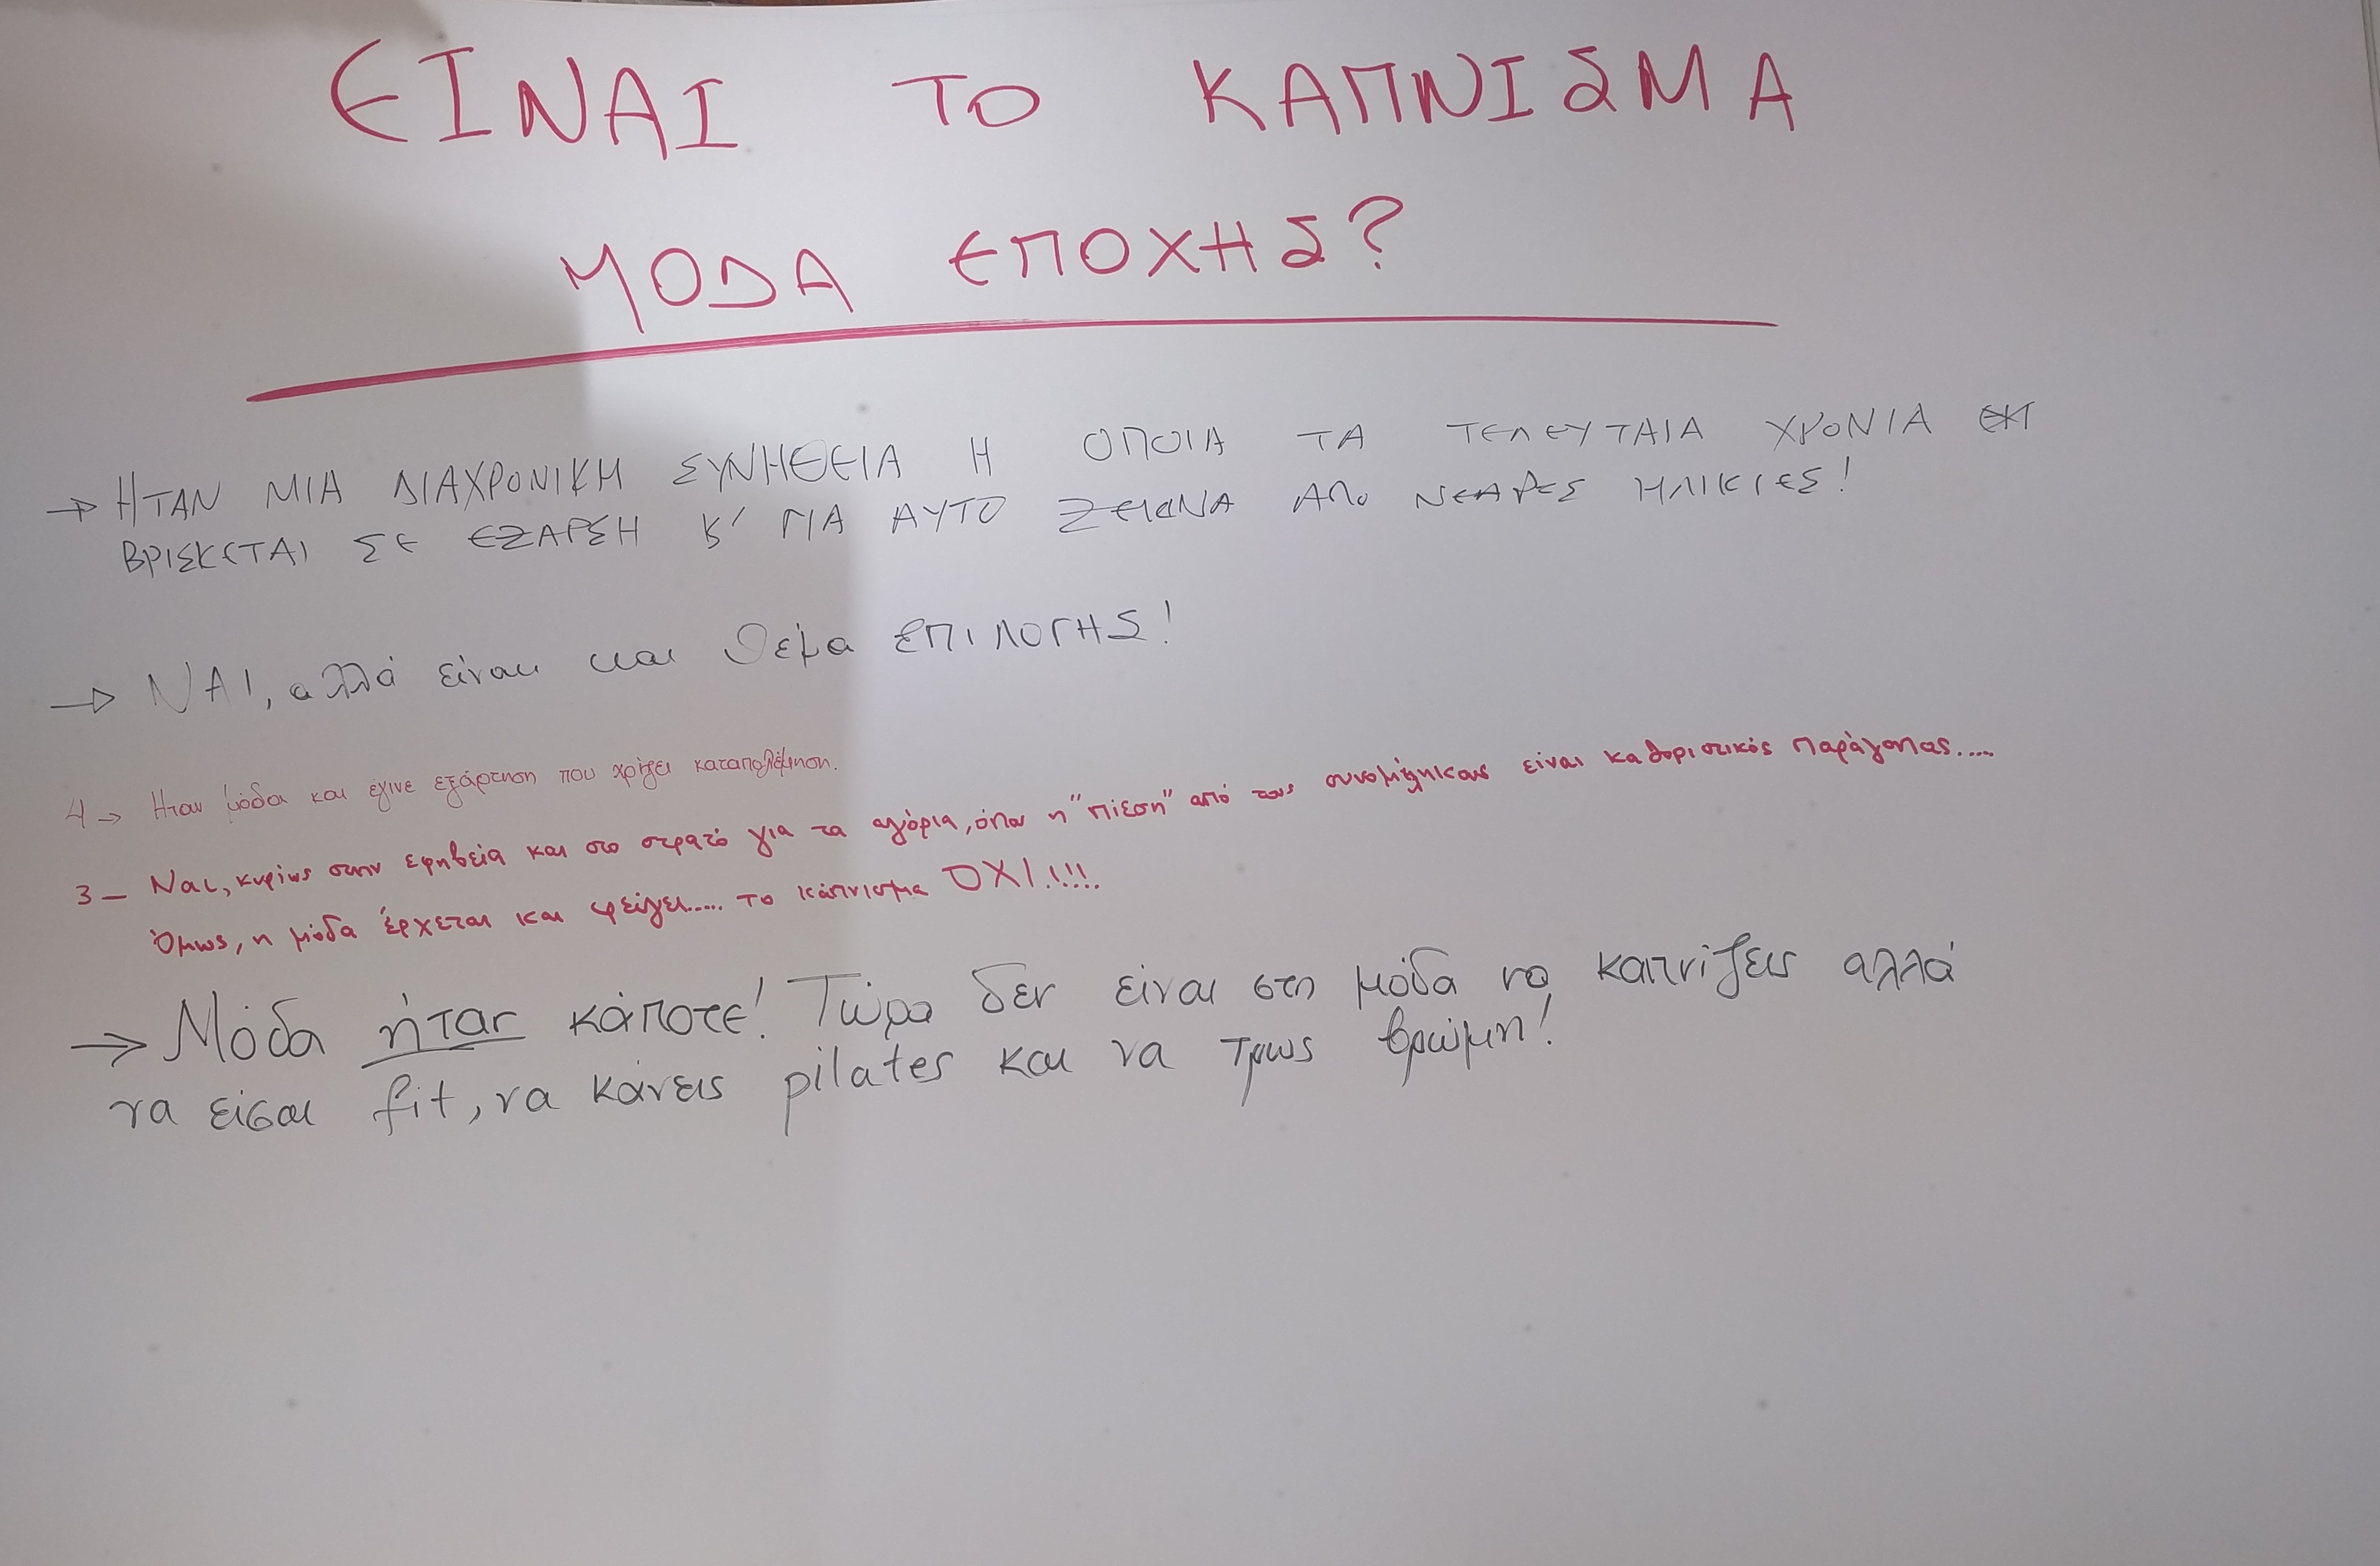 ΕΙΝΑΙ ΤΟ ΚΑΠΝΙΣΜΑ
ΜΟΔΑ ΕΠΟΧΗΣ?
→ ΗΤΑΝ ΜΙΑ ΔΙΑΧΡΟΝΙΚΗ ΣΥΝΗΘΕΙΑ Η ΟΠΟΙΑ ΤΑ ΤΕΛΕΥΤΑΙΑ ΧΡΟΝΙΑ
ΒΡΙΣΚΕΤΑΙ ΣΕ ΕΞΑΡΣΗ Κ' ΓΙΑ ΑΥΤΟ ΞΕΚΙΝΑ ΑΠΟ ΝΕΑΡΕΣ ΗΛΙΚΙΕΣ!
→ ΝΑΙ, αλλά είναι και θέμα ΕΠΙΛΟΓΗΣ!
4 → Ηταν μόδα και έγινε εξάρτηση που χρίζει καταπολέμηση.
3 – Ναι, κυρίως στην εφηβεία και στο στρατό για τα αγόρια, όπου η "πίεση" από τους συνομίληκους είναι καθοριστικός παράγοντας.....
Όμως, η μόδα έρχεται και φεύγει..... το κάπνισμα ΟΧΙ.!!!.
→ Μόδα ήταν κάποτε! Τώρα δεν είναι στη μόδα να καπνίζεις αλλά
να είσαι fit, να κάνεις pilates και να τρως βρώμη!